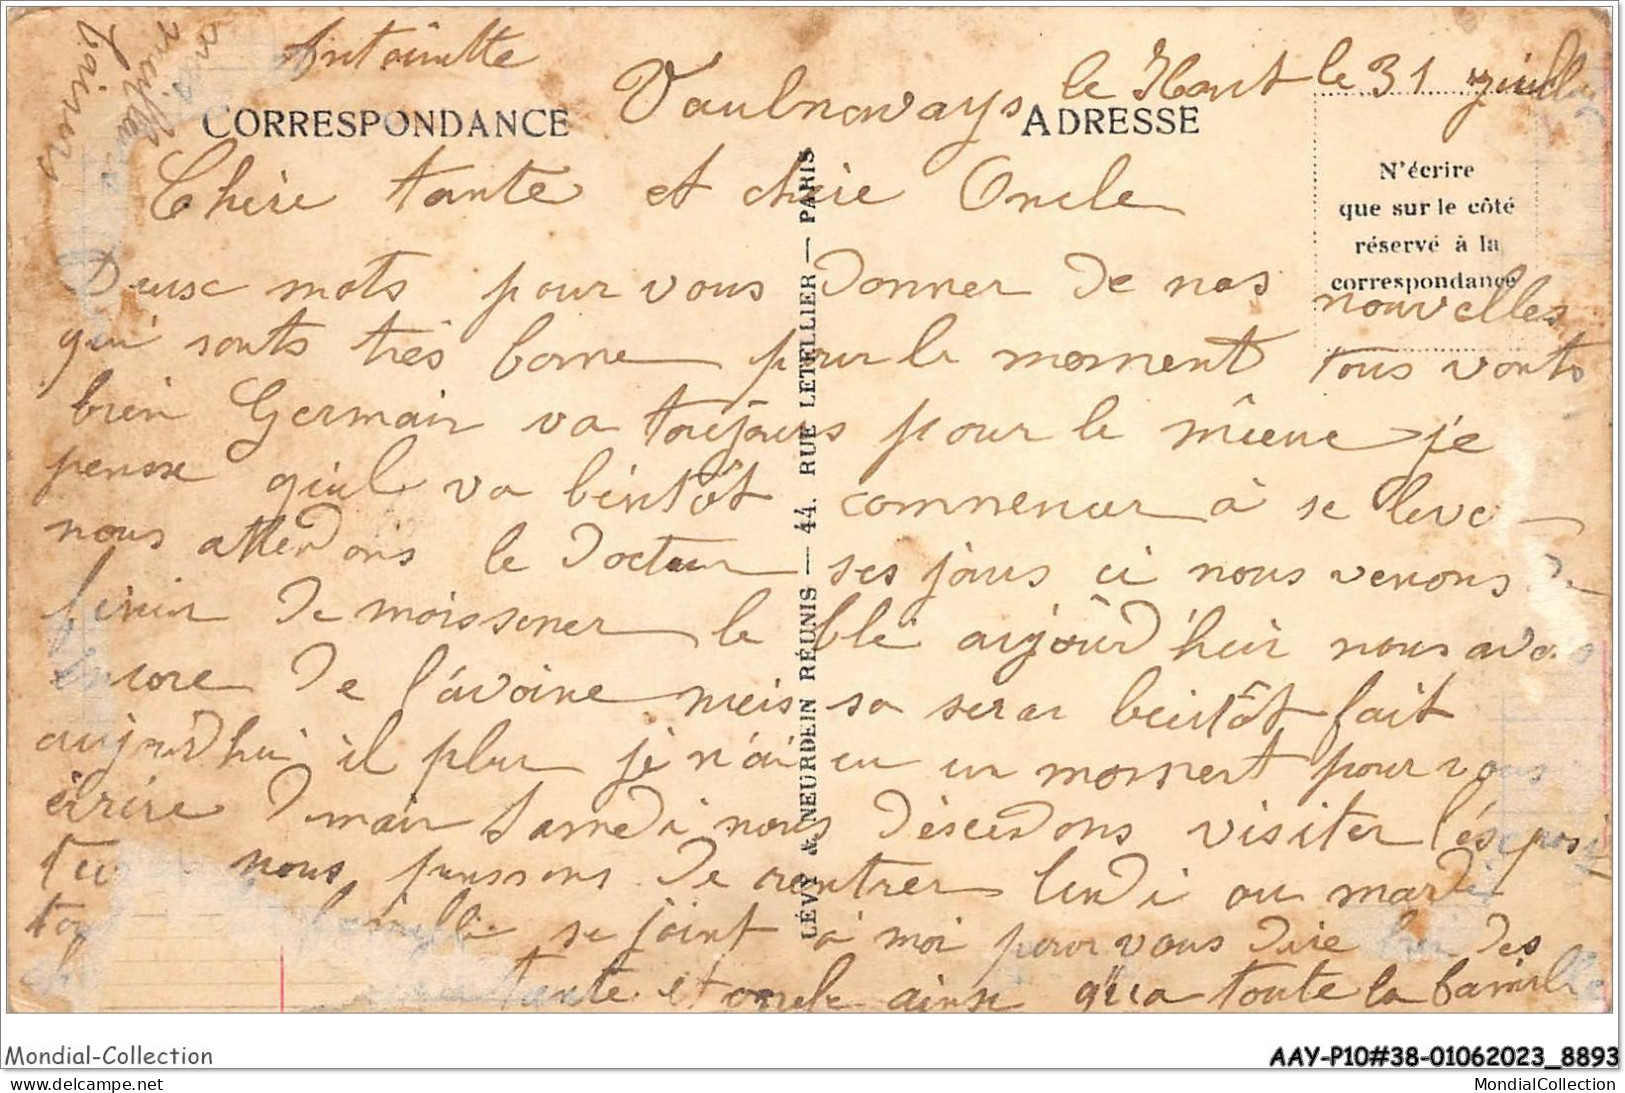 Antoinette
Vaulnavays le Haut le 31 juillet
CORRESPONDANCE
ADRESSE
N'écrire
que sur le côté
réservé à la
correspondance
Chère tante et chere Oncle
Deux mots pour vous donner de nos nouvelles
qui sonts très bonne pour le moment tous vonts
bien Germain va toujours pour le mieue je
pensse quil va bientôt commencer à se lever
nous attendons le docteur ses jours ci nous venons de
finir de moissoner le blé aujourd'hui nous avons
encore de l'avoine meis sa serar bientôt fait
aujourd'hui il pleu je n'ai eu un moment pour vous
écrire Demain Samedi nous descendons visiter l'éxposi
nous pensons de rentrer lundi ou mardi
famille se joint à moi pour vous dire des
tante et oncle ainsi qua toute la famille
baisers
LÉVY & NEURDEIN RÉUNIS — 44. RUE LETELLIER — PARIS
Mondial-Collection
AAY-P10#38-01062023_8893
delcampe.net
MondialCollection